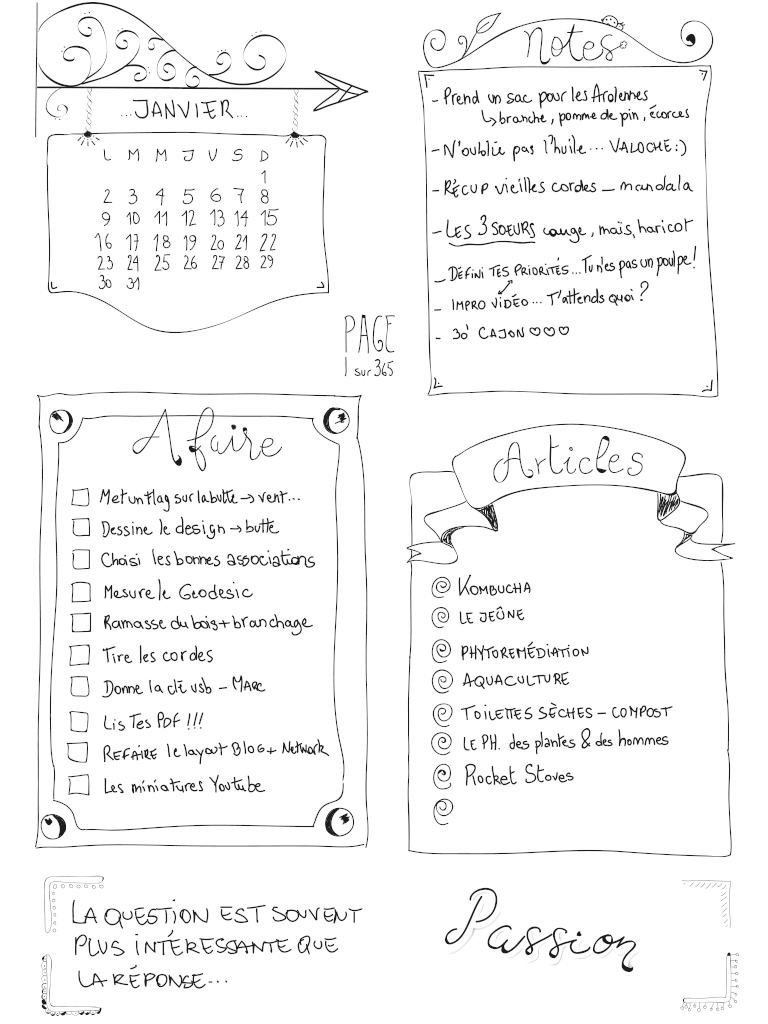 ...JANVIER...
L M M J V S D
1
2 3 4 5 6 7 8
9 10 11 12 13 14 15
16 17 18 19 20 21 22
23 24 25 26 27 28 29
30 31
PAGE
1 sur 365
Notes
- Prend un sac pour les Ardennes
↳ branche, pomme de pin, écorces
- N'oublie pas l'huile... VALOCHE :)
- RÉCUP vieilles cordes _ mandala
- LES 3 SOEURS courge, maïs, haricot
- DÉFINI TES PRIORITÉS... Tu n'es pas un poulpe!
- IMPRO VIDÉO... T'attends quoi?
- 30' CAJON ♡♡♡
A faire
Met un flag sur la butte → vent...
Dessine le design → butte
Choisi les bonnes associations
Mesure le Geodesic
Ramasse du bois + branchage
Tire les cordes
Donne la clé usb - MARC
Lis Tes PDF !!!
REFAIRE le layout Blog + Network
Les miniatures Youtube
Articles
KOMBUCHA
LE JEÛNE
PHYTOREMÉDIATION
AQUACULTURE
TOILETTES SÈCHES - COMPOST
LE PH. des plantes & des hommes
Rocket Stoves
LA QUESTION EST SOUVENT
PLUS INTÉRESSANTE QUE
LA RÉPONSE...
Passion